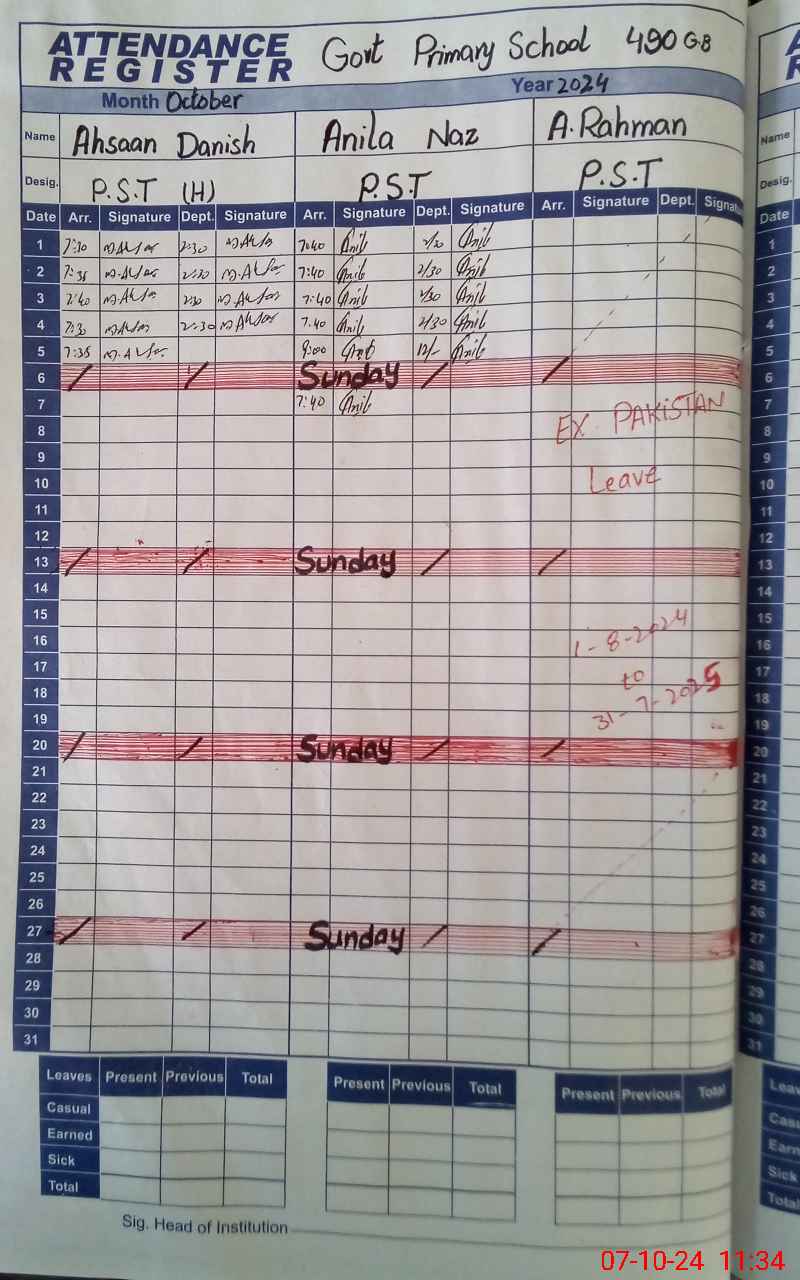 ATTENDANCE REGISTER Govt Primary School 490 GB
Month October Year 2024
Name Ahsaan Danish Anila Naz A. Rahman
Desig. P.S.T (H) P.S.T P.S.T
Date Arr. Signature Dept. Signature Arr. Signature Dept. Signature Arr. Signature Dept. Signatu
1 7:30 2:30 7:40 Anib Anib
2 7:35 2:30 7:40 Anib 2/30 Anib
3 7:40 7:40 Anib Anib
4 7:30 2:30 7:40 Anib 2/30 Anib
5 7:35 9:00 Anib 12/- Anib
6 Sunday
7 7:40 Anib
8 EX PAKISTAN
9
10 Leave
11
12
13 Sunday
14
15
16 1-8-2024
17 to
18 31-7-2025
19
20 Sunday
21
22
23
24
25
26
27 Sunday
28
29
30
31
Leaves Present Previous Total Present Previous Total Present Previous Total
Casual
Earned
Sick
Total
Sig. Head of Institution
Name
Desig.
Date
1
2
3
4
5
6
7
8
9
10
11
12
13
14
15
16
17
18
19
20
21
22
23
24
25
26
27
28
29
30
31
Leav
Casu
Earn
Sick
Total
07-10-24 11:34